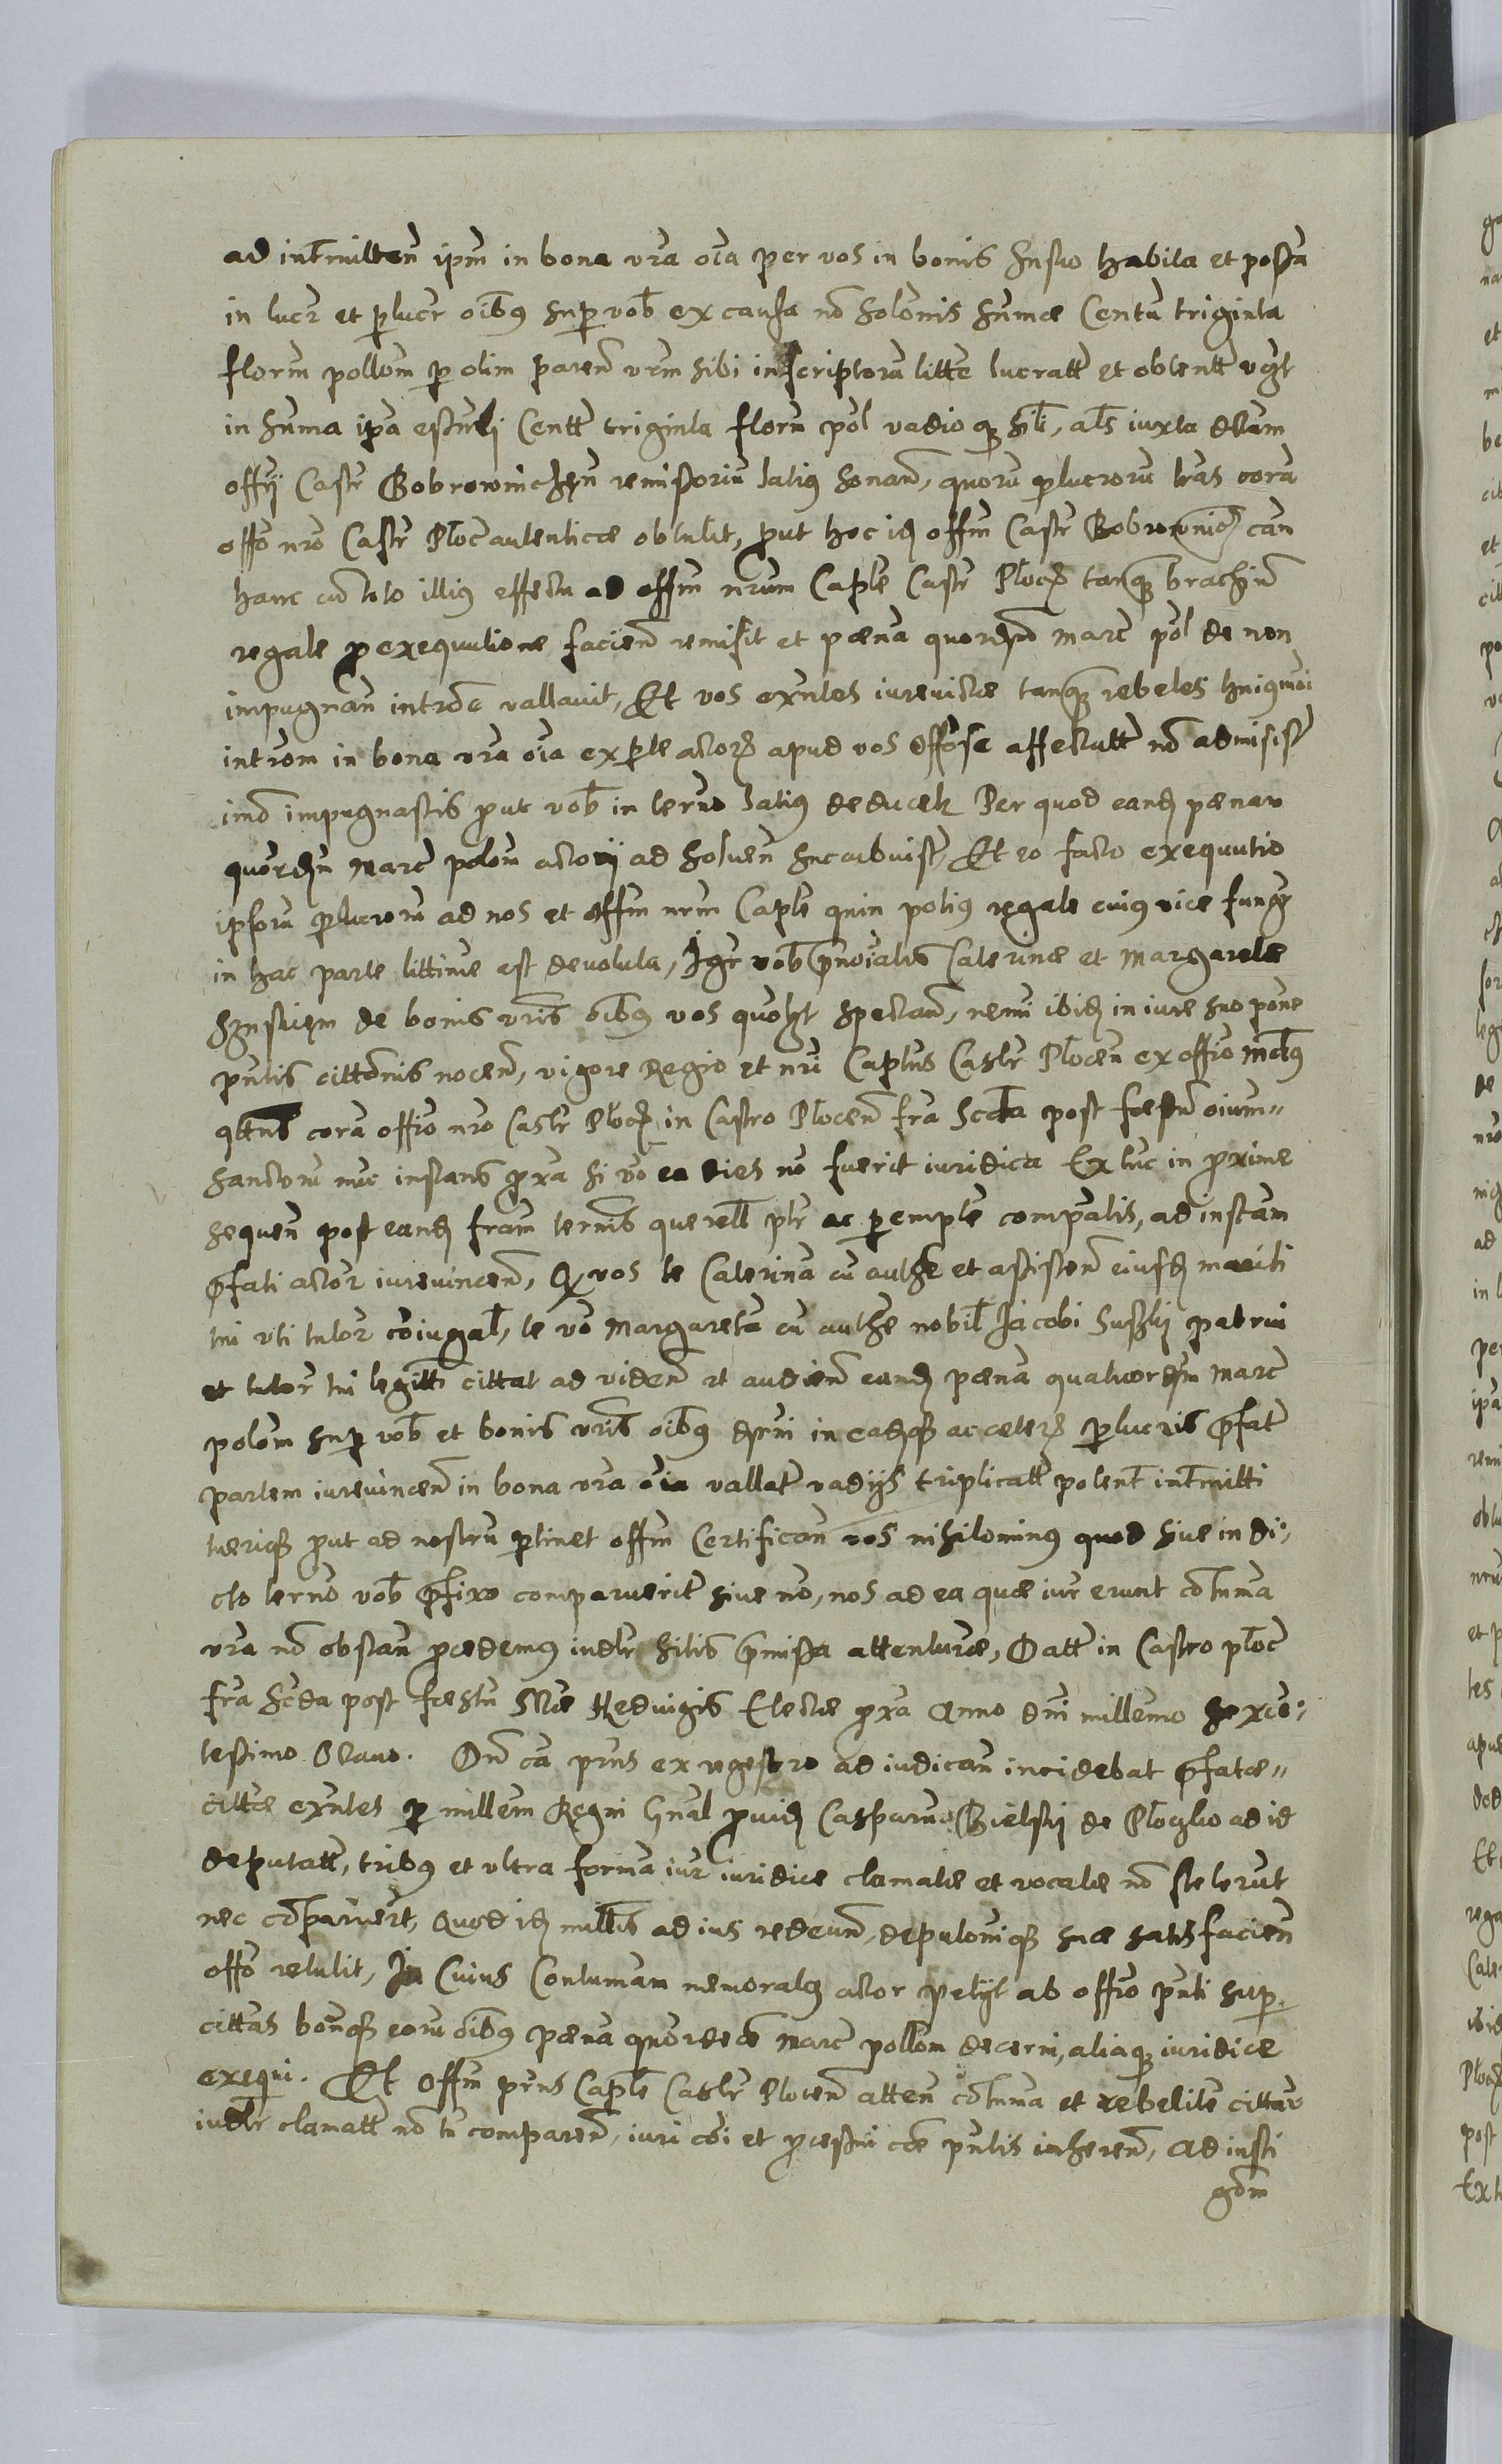 ad intmitten ipm in bona vra oia per vos in bonis Susko habita et possa
in lucr et perlucr oibus super vob ex causa no solonis summae Centu triginta
florm pollom per olim paren vrm sibi inscriptoru litte lucratt et obtentt vgt
in summa ipa Centt triginta floru pol vadio qz sili, als iuxta
offij Castr Bobrownicken remissoriu latius sonan, quoru perlucroru lras cora
offo nro Castr Ploc autenticae obtulit, prout hoc id offm Castr Bobrownic can
hanc cu toto illius effectu ad offm nrum Caple Castr Ploc tanq brachiu
regale pro exequutione facien remisit et paena quordno marc pol de non
impugnan introe vallavit, Et vos exntes iurevictae tanq rebeles huiusmoi
introm in bona vra oia ex parte actoris apud vos offose affectutt no admisist
imo impugnastis prout vob in termo latius deducetr Per quod eand paenam
quordcm marc polom actorij ad soluen succubuist, Et eo facto exequutio
ipsoru perlucroru ad nos et offm nrm Caple quin potius regale cuius vice fungr
in hac parte littime est devoluta, Igr vob pnoiatis Caterinae et Margaretae
de bonis vris oibus vos quolgt spectan, nemi ibid in iure suo pone
pntis cittonis nocen, vigore Regio et nri Captus Castr Plocen ex offio mdtus
qttus cora offio nro Castr Ploc in Castro Plocen fra Scda post festu oium
sanctoru nuc instans prxa si vo ea dies no fuerit iuridica Ex tuc in proxime
sequen post eand fram ternis querell ptr ac peremptr compatis, ad instam
pfati actor iurevincen, Q vos te Caterina cu authe et assisten eiusd mariti
tui vti tutor coiugal, te vo Margareta cu authe nobil Jacobi Suskij patrui
et tutor tui legitt cittat ad viden et audien eand paena quatuordcm marc
polom super vob et bonis vris oibus dcrni in eadqz ac ceteris perlucris pfat
partem iurevincen in bona vra oia vallatr vadijs triplicatt potent intmitti
tueriqz prout ad nostru ptinet offm Certifican vos nihilominus quod siue in di
cto termo vob pfixo comparueritr siue no, nos ad ea quae iur erunt cotuma
vra no obstan procedemus iudtr sitis pmissa attenturae, Datt in Castro ploc
fra scda post festu Stae Hedvigis Electae prxa Anno dni millemo sexce
tesimo Octavo. Dn ca prns ex regestro ad iudican incidebat pfatae
cittae exntes per millem Regni Gnal prouid Casparum Bielskij de Plocko ad id
deputatt, tribus et vltra forma iur iuridice clamatae et vocatae no steterut
nec coparuert, Quod id millis ad ius redeun, deputoniqz suae satisfacien
offo retulit, In Cuius Contumam memoratus actor petijt ab offio pnti super
cittas bonqz earu oibus paena quordece marc pollom decerni, aliaqz iuridice
exequi. Et offm prns Caple Castr Plocen atten cotuma et rebelite cittar
iudtr clamatt no tn comparen, iuri coi et processui cae pntis inheren, ad insti
gom